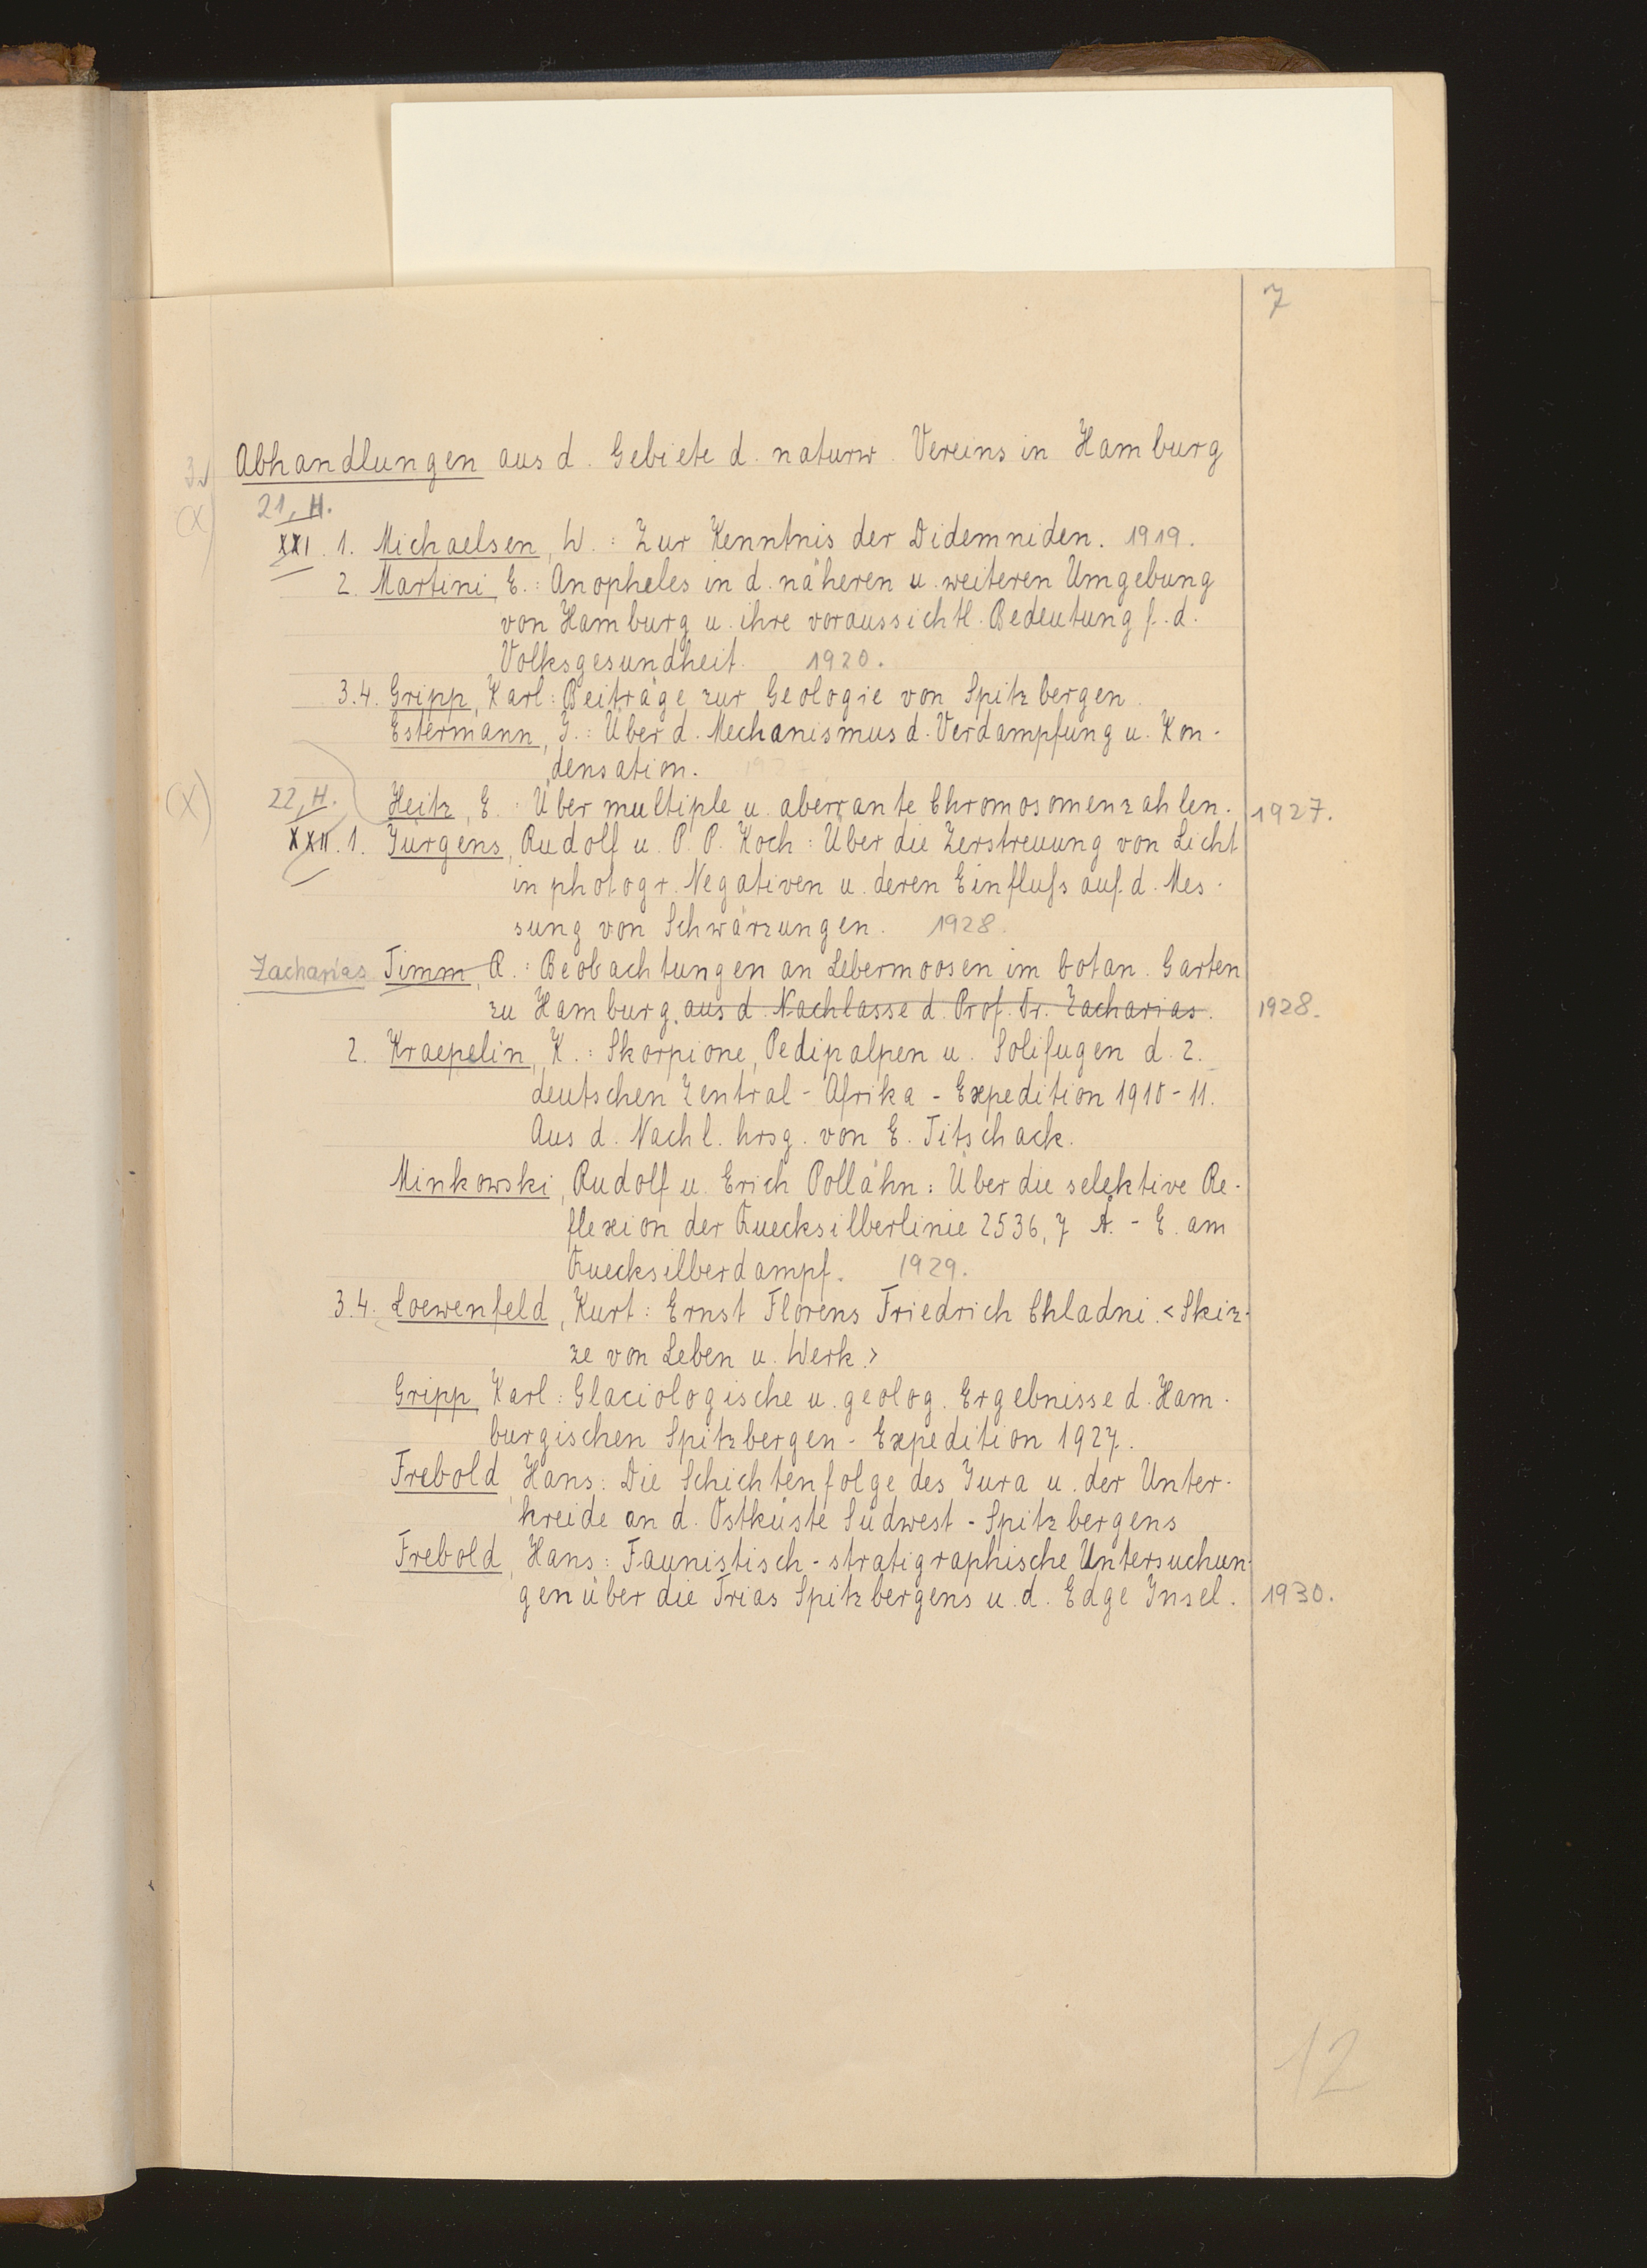 7
3.) Abhandlungen aus d. Gebiete d. naturw. Vereins in Hamburg
(X) 21, H.
XXI. 1. Michaelsen, W.: Zur Kenntnis der Didemniden. 1919.
2. Martini, E.: Anopheles in d. näheren u. weiteren Umgebung
von Hamburg u. ihre voraussichtl. Bedeutung f. d.
Volksgesundheit. 1920.
3.4. Gripp, Karl: Beiträge zur Geologie von Spitzbergen.
Estermann, I.: Über d. Mechanismus d. Verdampfung u. Kon-
densation.
(X) 22, H. Heitz, E.: Über multiple u. aberrante Chromosomenzahlen. 1927.
XXII. 1. Jürgens, Rudolf u. P. P. Koch: Über die Zerstreuung von Licht
in photogr. Negativen u. deren Einfluß auf d. Mes-
sung von Schwärzungen. 1928.
Zacharias Timm, R.: Beobachtungen an Lebermoosen im botan. Garten
zu Hamburg. aus d. Nachlasse d. Prof. Dr. Zacharias. 1928.
2. Kraepelin, K.: Skorpione, Pedipalpen u. Solifugen d. 2.
deutschen Zentral-Afrika-Expedition 1910-11.
Aus d. Nachl. hrsg. von E. Titschack.
Minkowski, Rudolf u. Erich Pollähn: Über die selektive Re-
flexion der Quecksilberlinie 2536,7 Å.-E. am
Quecksilberdampf. 1929.
3.4. Loewenfeld, Kurt: Ernst Florens Friedrich Chladni. <Skiz-
ze von Leben u. Werk.>
Gripp, Karl: Glaciologische u. geolog. Ergebnisse d. Ham-
burgischen Spitzbergen-Expedition 1927.
Frebold, Hans: Die Schichtenfolge des Jura u. der Unter-
kreide an d. Ostküste Südwest-Spitzbergens
Frebold, Hans: Faunistisch-stratigraphische Untersuchun-
gen über die Trias Spitzbergens u. d. Edge Insel. 1930.
12